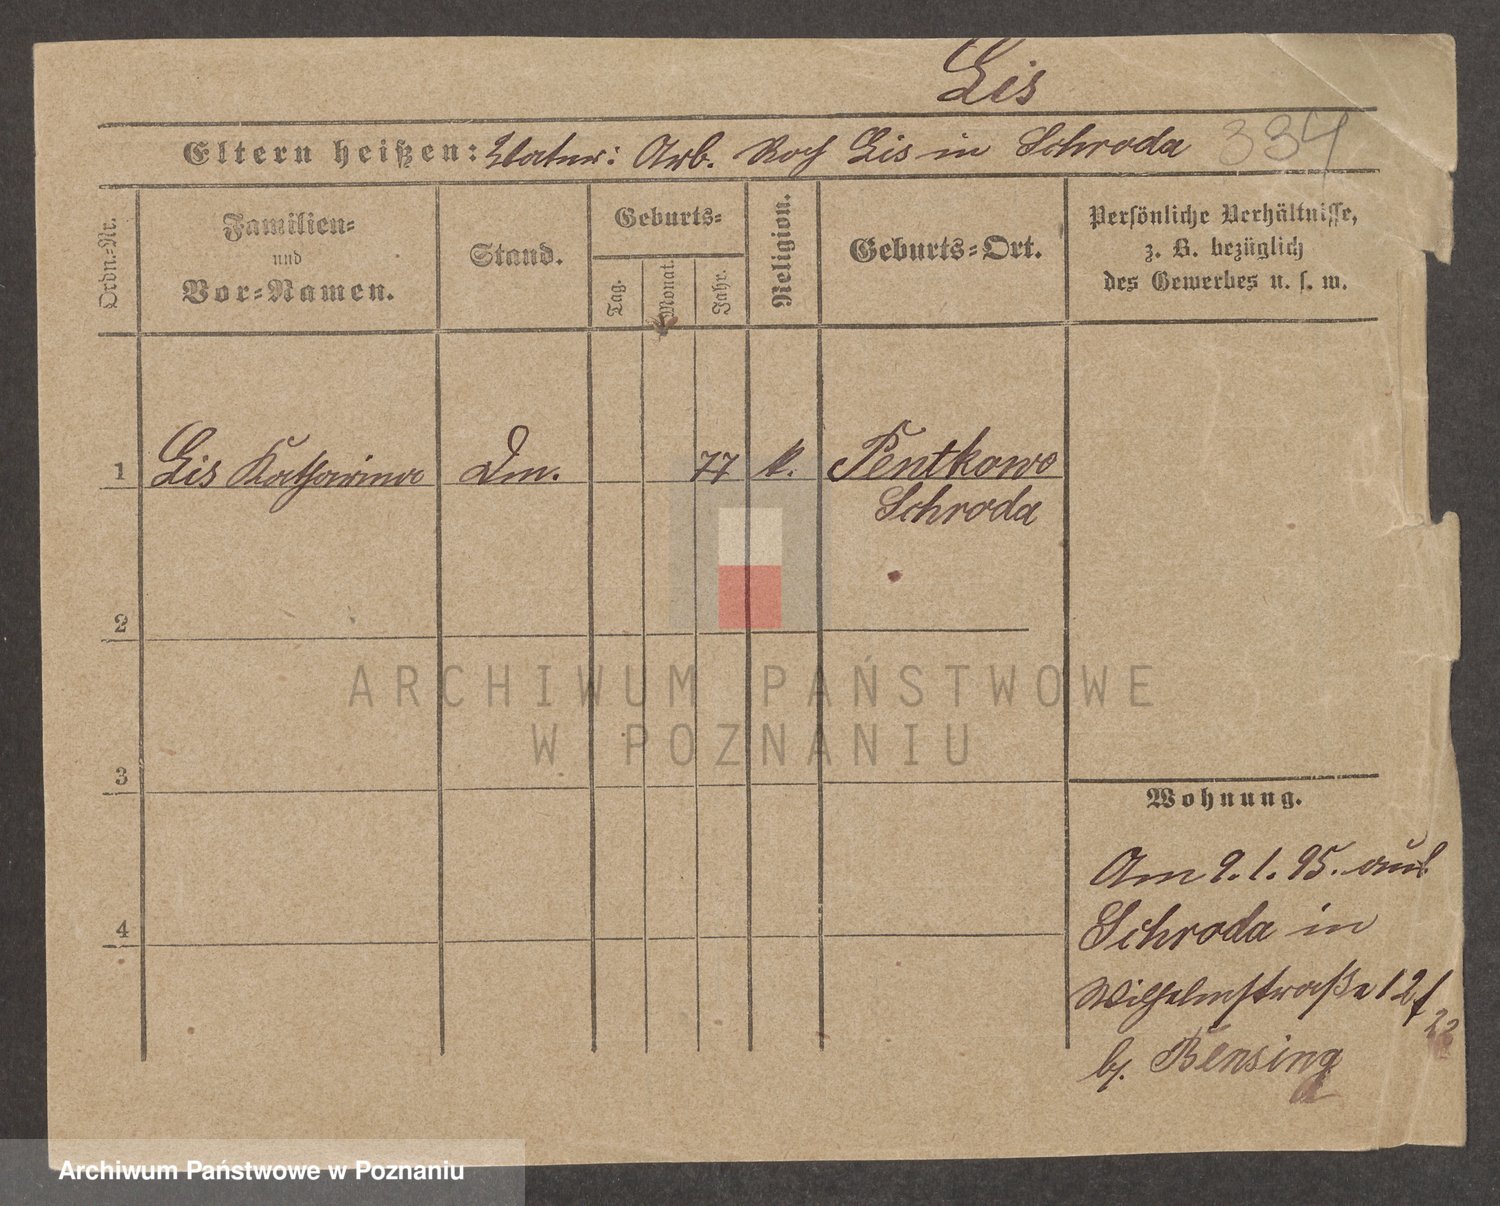 Lis
Eltern heißen: Vater: Arb. Roch Lis in Schroda 334
Ordn.-Nr.
Familien-
und
Vor-Namen.
Stand.
Geburts-
Tag.
Monat.
Jahr.
Religion.
Geburts-Ort.
Persönliche Verhältnisse,
z. B. bezüglich
des Gewerbes u. s. w.
1 Lis Katharina Dm. 77 k. Pentkowo
Schroda
2
3
4
ARCHIWUM PAŃSTWOWE
W POZNANIU
Wohnung.
Am 9.1.95. aus
Schroda in
Wilhelmstraße 12
b. Bensing
Archiwum Państwowe w Poznaniu